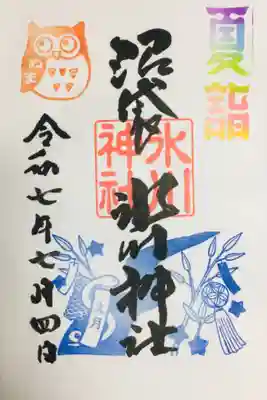 夏詣
沼袋氷川神社
氷川
神社
令和七年七月四日
ぬま
七月